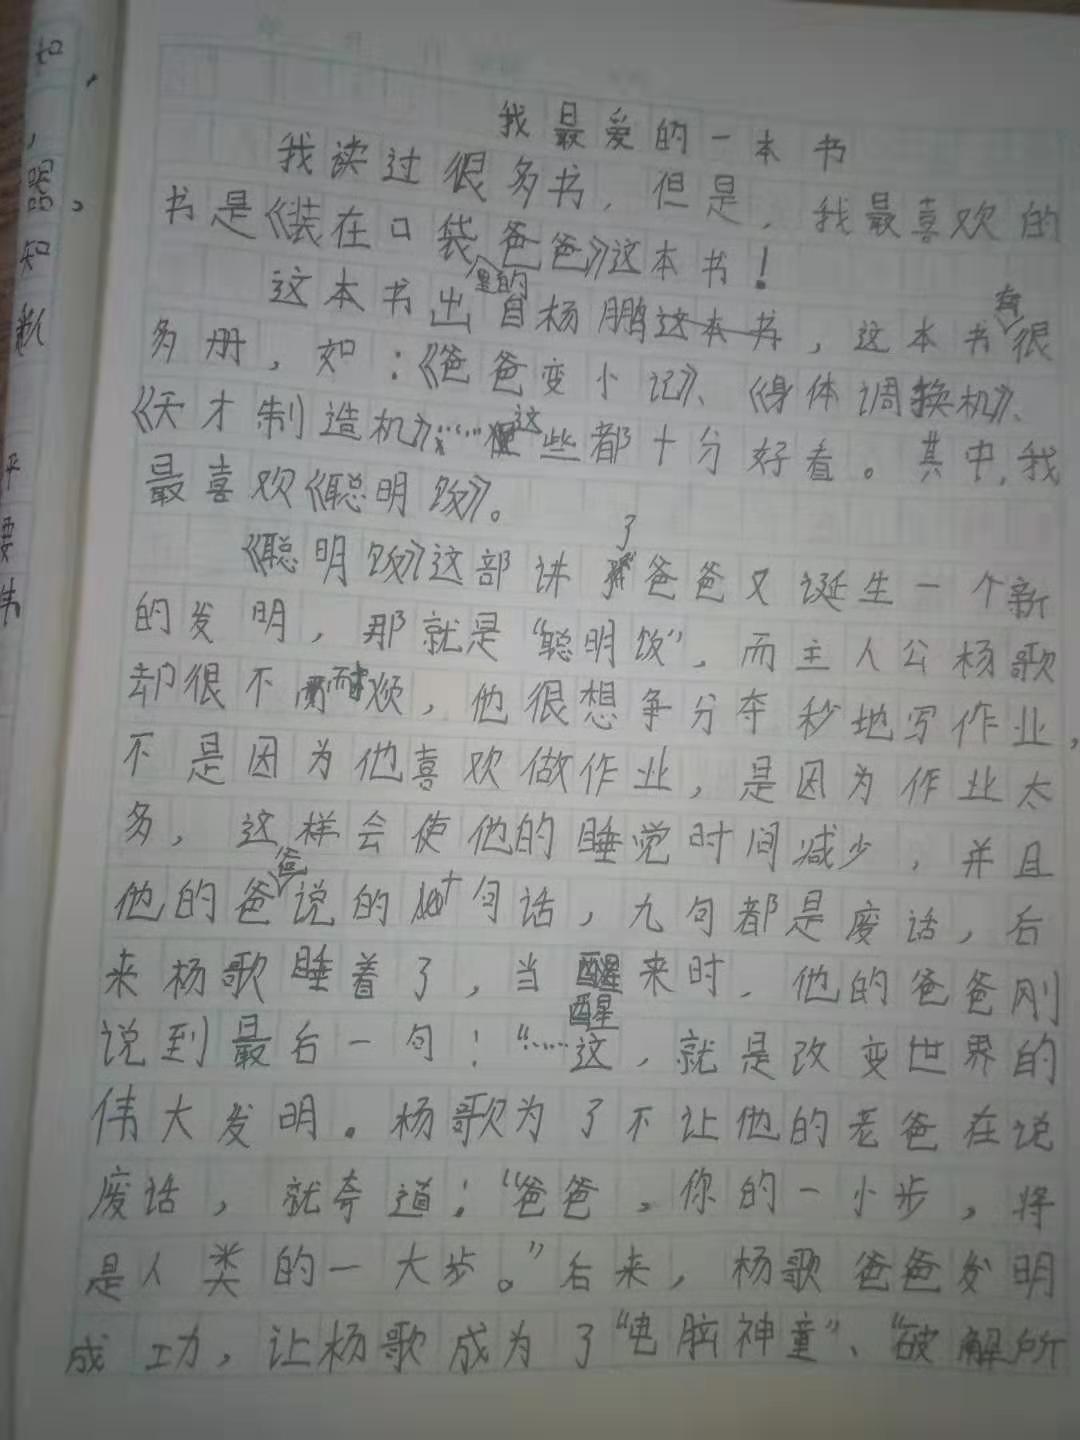 我最爱的一本书
我读过很多书，但是，我最喜欢的
书是《装在口袋里的爸爸》这本书！
这本书出自杨鹏，这本书有很
多册，如：《爸爸变小记》、《身体调换机》、
《天才制造机》……这些都十分好看。其中，我
最喜欢《聪明饭》。
《聪明饭》这部讲了爸爸又诞生一个新
的发明，那就是“聪明饭”，而主人公杨歌
却很不耐烦，他很想争分夺秒地写作业，
不是因为他喜欢做作业，是因为作业太
多，这样会使他的睡觉时间减少，并且
他的爸爸说的十句话，九句都是废话，后
来杨歌睡着了，当醒来时，他的爸爸刚
说到最后一句：“……这，就是改变世界的
伟大发明。杨歌为了不让他的老爸在说
废话，就夸道：“爸爸，你的一小步，将
是人类的一大步。”后来，杨歌爸爸发明
成功，让杨歌成为了“电脑神童”、“破解所
知，
，
器。
知
平
要
伟